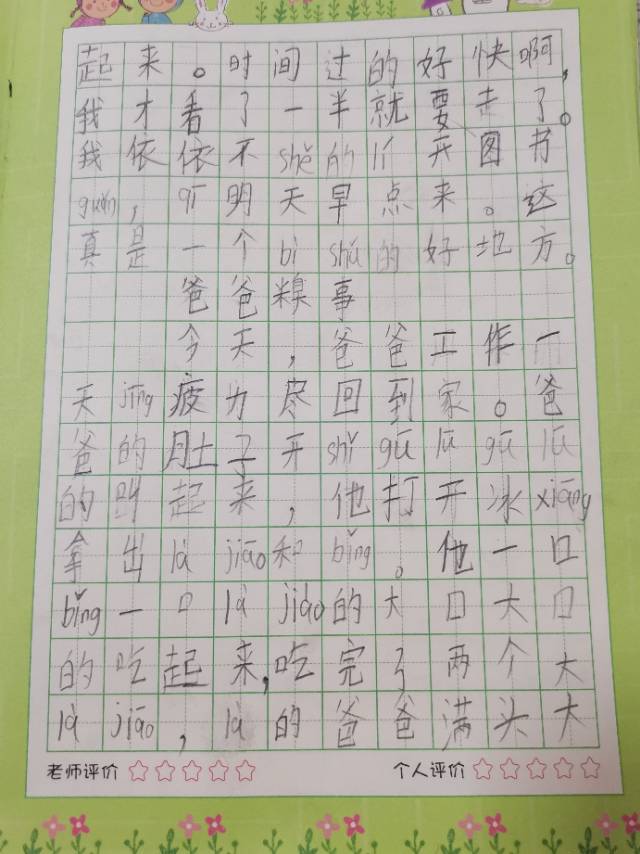 起来。时间过的好快啊,
我才看了一半就要走了。
我依依不shě的lí开图书
guǎn,qī明天早点来。这
真是一个bì shǔ的好地方。
爸爸糗事
今天,爸爸工作一
天jīng疲力尽回到家。爸
爸的肚子开shǐ gū lū gū lū
的叫起来,他打开冰xiāng
拿出là jiāo和bǐng。他一口
bǐng一口là jiāo的大口大口
的吃起来,吃完了两个大
là jiāo,là的爸爸满头大
老师评价 ☆☆☆☆☆ 个人评价 ☆☆☆☆☆